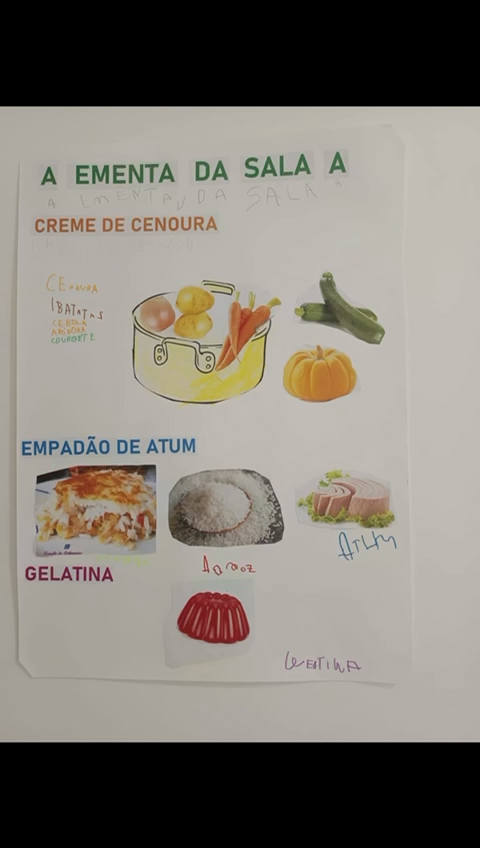 A EMENTA DA SALA A
A EMENTA DA SALA A
CREME DE CENOURA
CENOURA
BATATAS
CEBOLA
ABÓBORA
COURGETE
EMPADÃO DE ATUM
ATUM
GELATINA